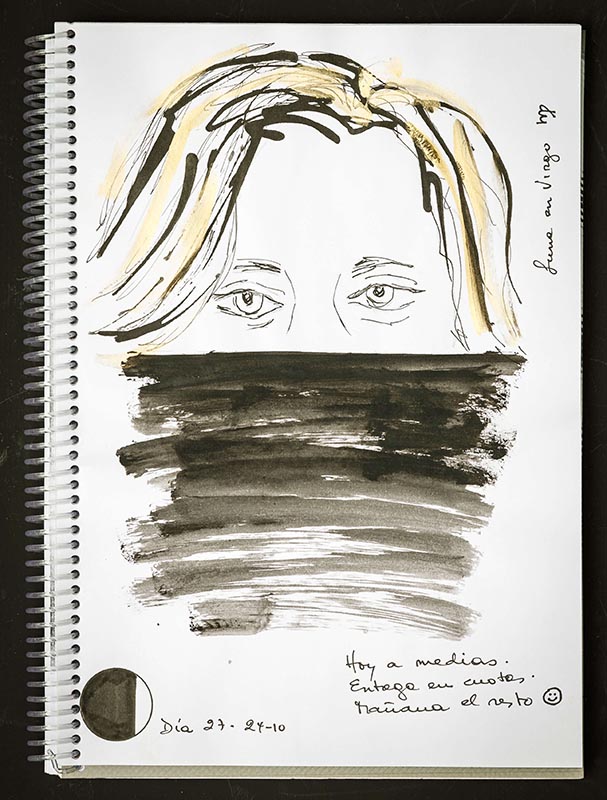 Luna en Virgo ♍
Hoy a medias.
Entega en cuotas.
Mañana el resto ☺
Día 27 - 24-10